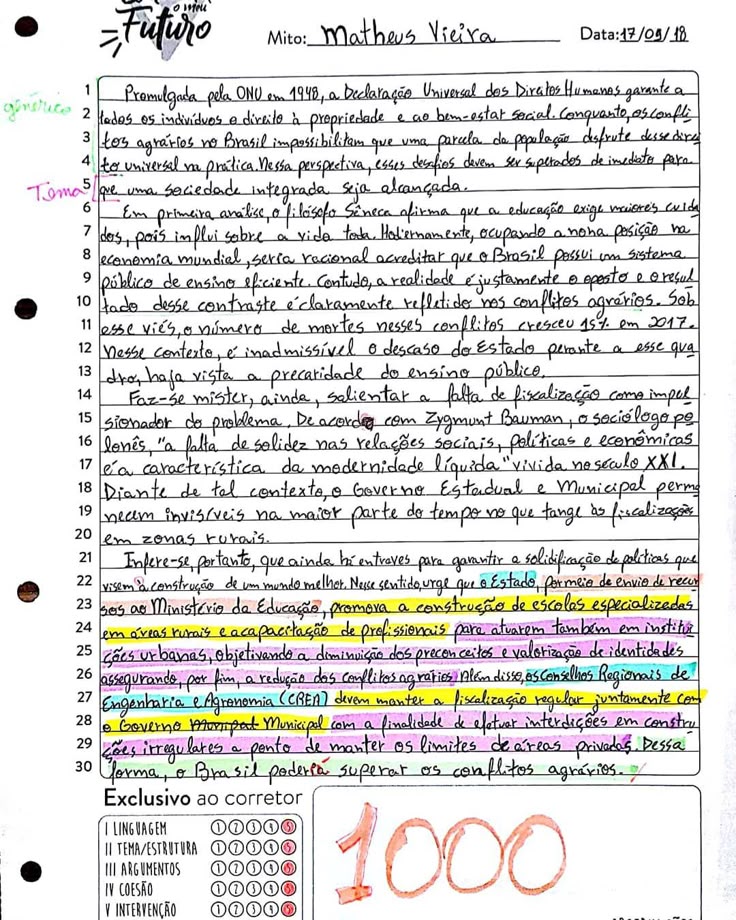 o meu
Futuro
Mito: Matheus Vieira Data: 17/09/18
genérico
Tema
1 Promulgada pela ONU em 1948, a Declaração Universal dos Direitos Humanos garante a
2 todos os indivíduos o direito à propriedade e ao bem-estar social. Conquanto, os confli
3 tos agrários no Brasil impossibilitam que uma parcela da população desfrute desse direi
4 to universal na prática. Nessa perspectiva, esses desafios devem ser superados de imediato para
5 que uma sociedade integrada seja alcançada.
6 Em primeira análise, o filósofo Sêneca afirma que a educação exige maiores cuida
7 dos, pois influi sobre a vida toda. Hodiernamente, ocupando a nona posição na
8 economia mundial, seria racional acreditar que o Brasil possui um sistema
9 público de ensino eficiente. Contudo, a realidade é justamente o oposto e o resul
10 tado desse contraste é claramente refletido nos conflitos agrários. Sob
11 esse viés, o número de mortes nesses conflitos cresceu 15% em 2017.
12 Nesse contexto, é inadmissível o descaso do Estado perante a esse qua
13 dro, haja vista a precaridade do ensino público.
14 Faz-se mister, ainda, salientar a falta de fiscalização como impul
15 sionador do problema. De acordo com Zygmunt Bauman, o sociólogo po
16 lonês, "a falta de solidez nas relações sociais, políticas e econômicas
17 é a característica da modernidade líquida" vivida no século XXI.
18 Diante de tal contexto, o Governo Estadual e Municipal perma
19 necem invisíveis na maior parte do tempo no que tange às fiscalizações
20 em zonas rurais.
21 Infere-se, portanto, que ainda há entraves para garantir a solidificação de políticas que
22 visem à construção de um mundo melhor. Nesse sentido, urge que o Estado, por meio de envio de recur
23 sos ao Ministério da Educação, promova a construção de escolas especializadas
24 em áreas rurais e a capacitação de profissionais para atuarem também em institui
25 ções urbanas, objetivando a diminuição dos preconceitos e valorização de identidades
26 assegurando, por fim, a redução dos conflitos agrários. Além disso, os Conselhos Regionais de
27 Engenharia e Agronomia (CREA) devem manter a fiscalização regular juntamente com
28 o Governo Municipal com a finalidade de efetuar interdições em constru
29 ções irregulares a ponto de manter os limites de áreas privadas. Dessa
30 forma, o Brasil poderia superar os conflitos agrários.
Exclusivo ao corretor
I LINGUAGEM 1 2 3 4 5
II TEMA/ESTRUTURA 1 2 3 4 5
III ARGUMENTOS 1 2 3 4 5
IV COESÃO 1 2 3 4 5
V INTERVENÇÃO 1 2 3 4 5
1000